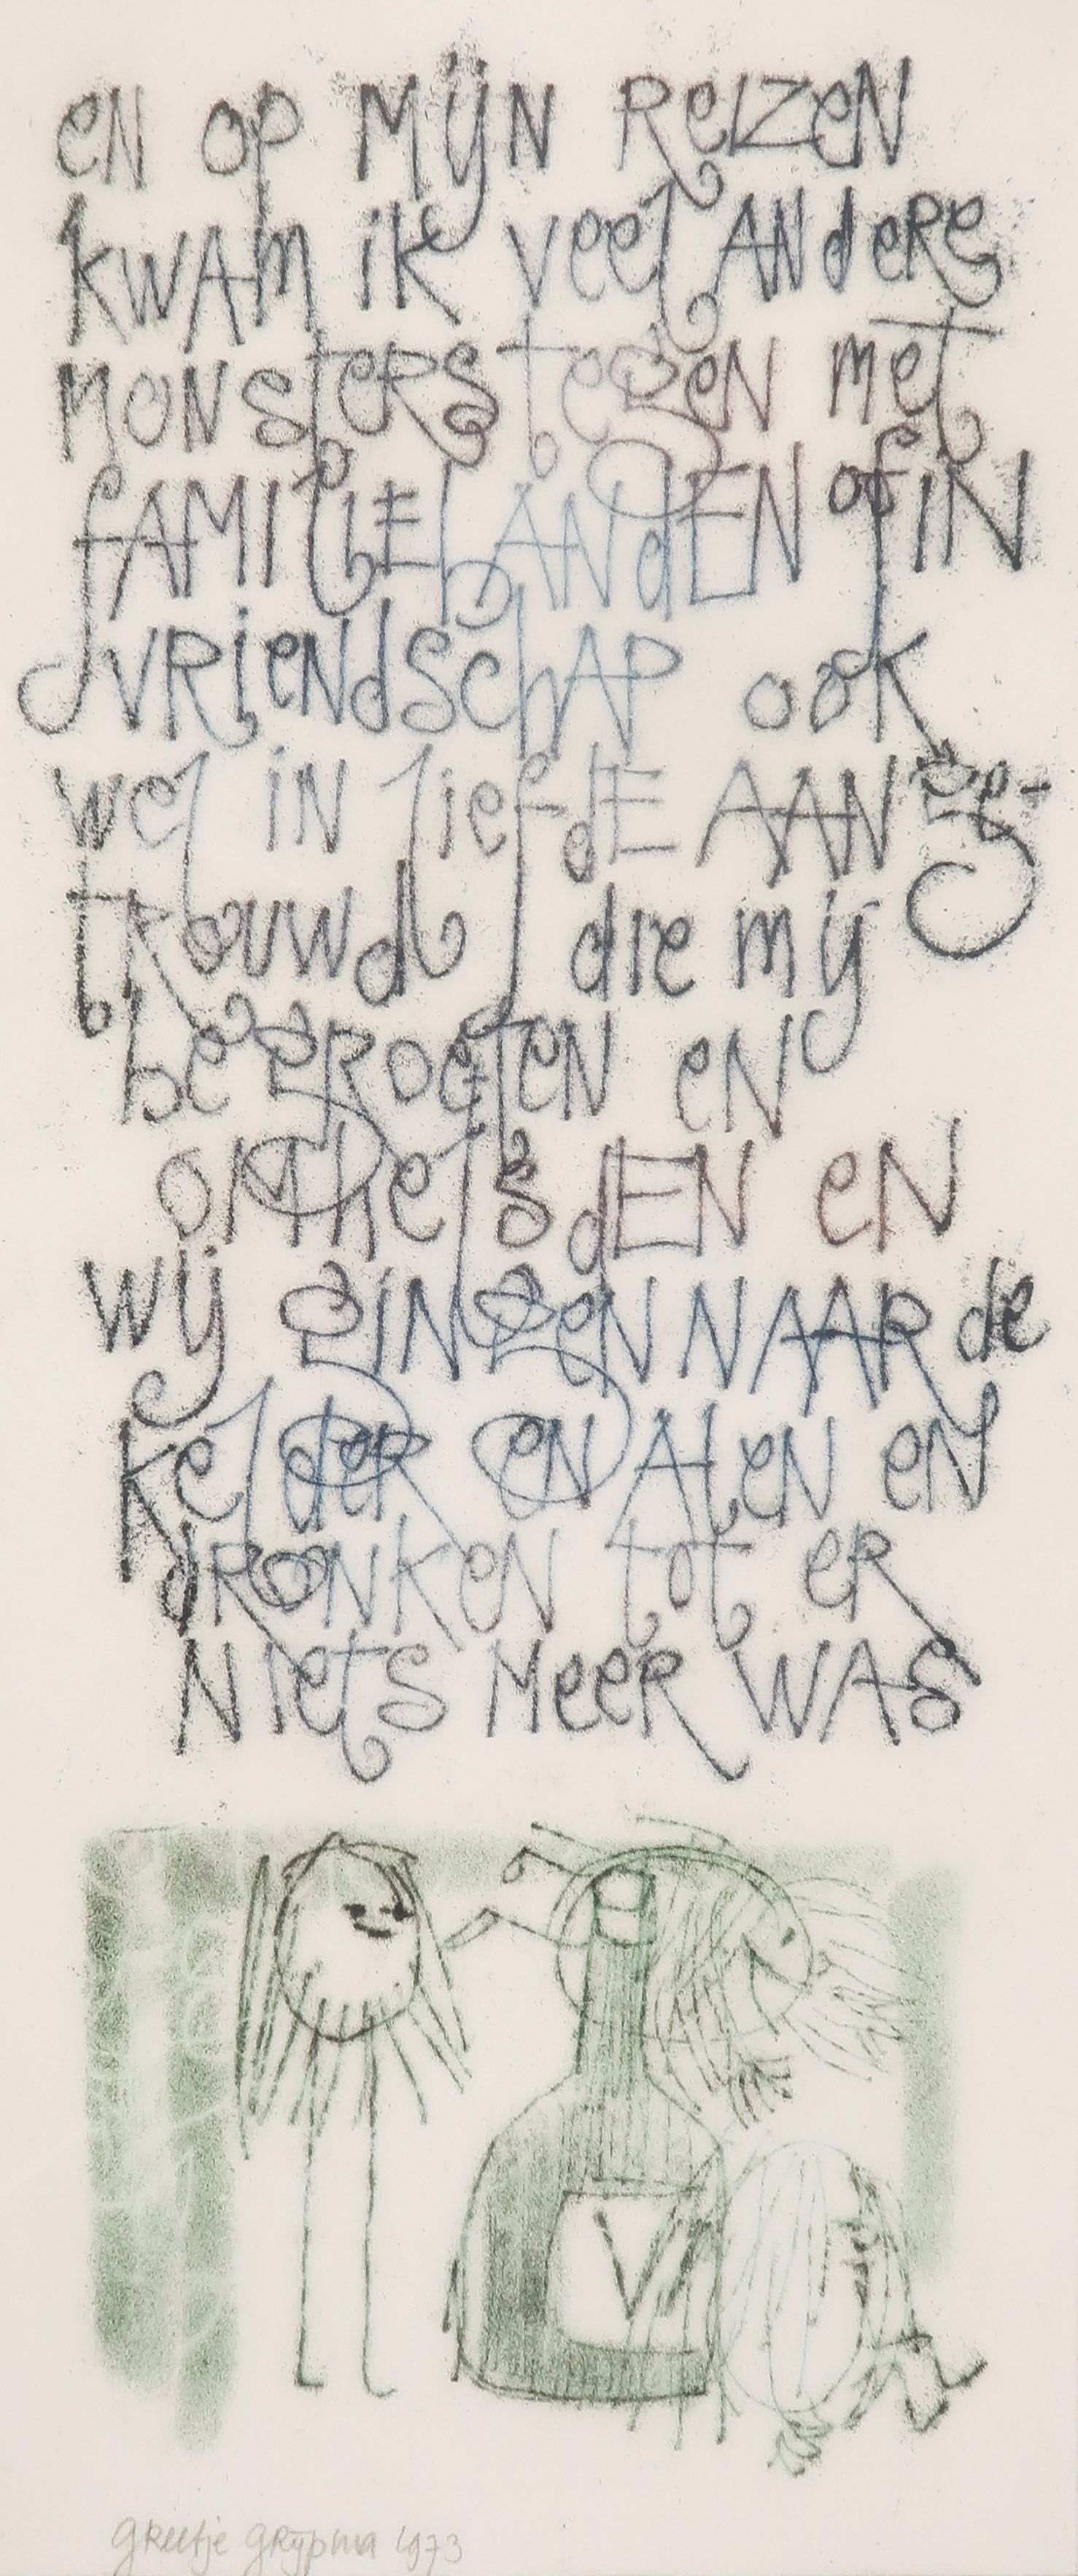 en op mijn reizen
kwam ik veel andere
monsters tegen met
familiebanden of in
vriendschap ook
wel in liefde aange-
trouwd die mij
begroeten en
omhelsden en
wij gingen naar de
kelder en aten en
dronken tot er
niets meer was
V
Greetje Grijpma 1973